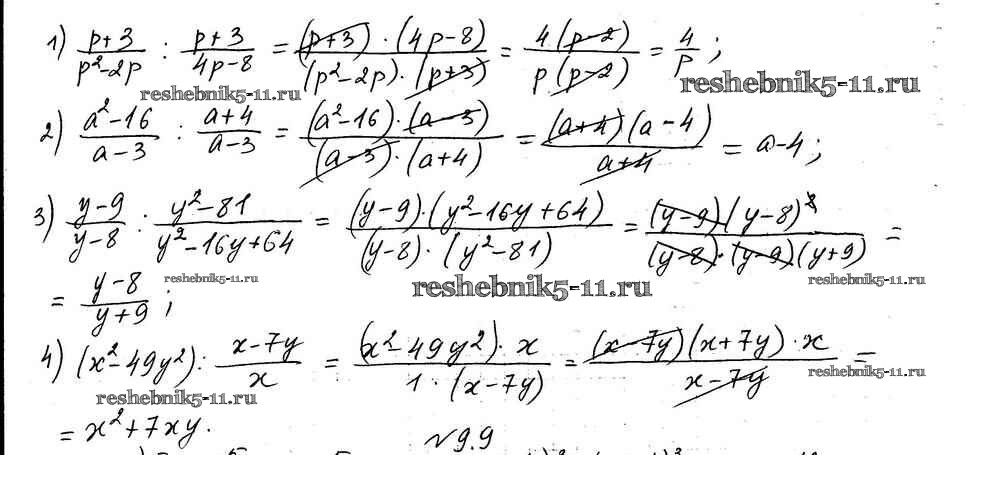 1) (p+3)/(p²-2p) : (p+3)/(4p-8) = ((p+3)·(4p-8))/((p²-2p)·(p+3)) = (4(p-2))/(p(p-2)) = 4/p ;
reshebnik5-11.ru reshebnik5-11.ru
2) (a²-16)/(a-3) : (a+4)/(a-3) = ((a²-16)·(a-3))/((a-3)·(a+4)) = ((a+4)(a-4))/(a+4) = a-4 ;
3) (y-9)/(y-8) : (y²-81)/(y²-16y+64) = ((y-9)·(y²-16y+64))/((y-8)·(y²-81)) = ((y-9)(y-8)²)/((y-8)·(y-9)(y+9)) =
reshebnik5-11.ru reshebnik5-11.ru reshebnik5-11.ru
= (y-8)/(y+9) ;
4) (x²-49y²) : (x-7y)/x = ((x²-49y²)·x)/(1·(x-7y)) = ((x-7y)(x+7y)·x)/(x-7y) =
reshebnik5-11.ru reshebnik5-11.ru
= x²+7xy.
№9.9